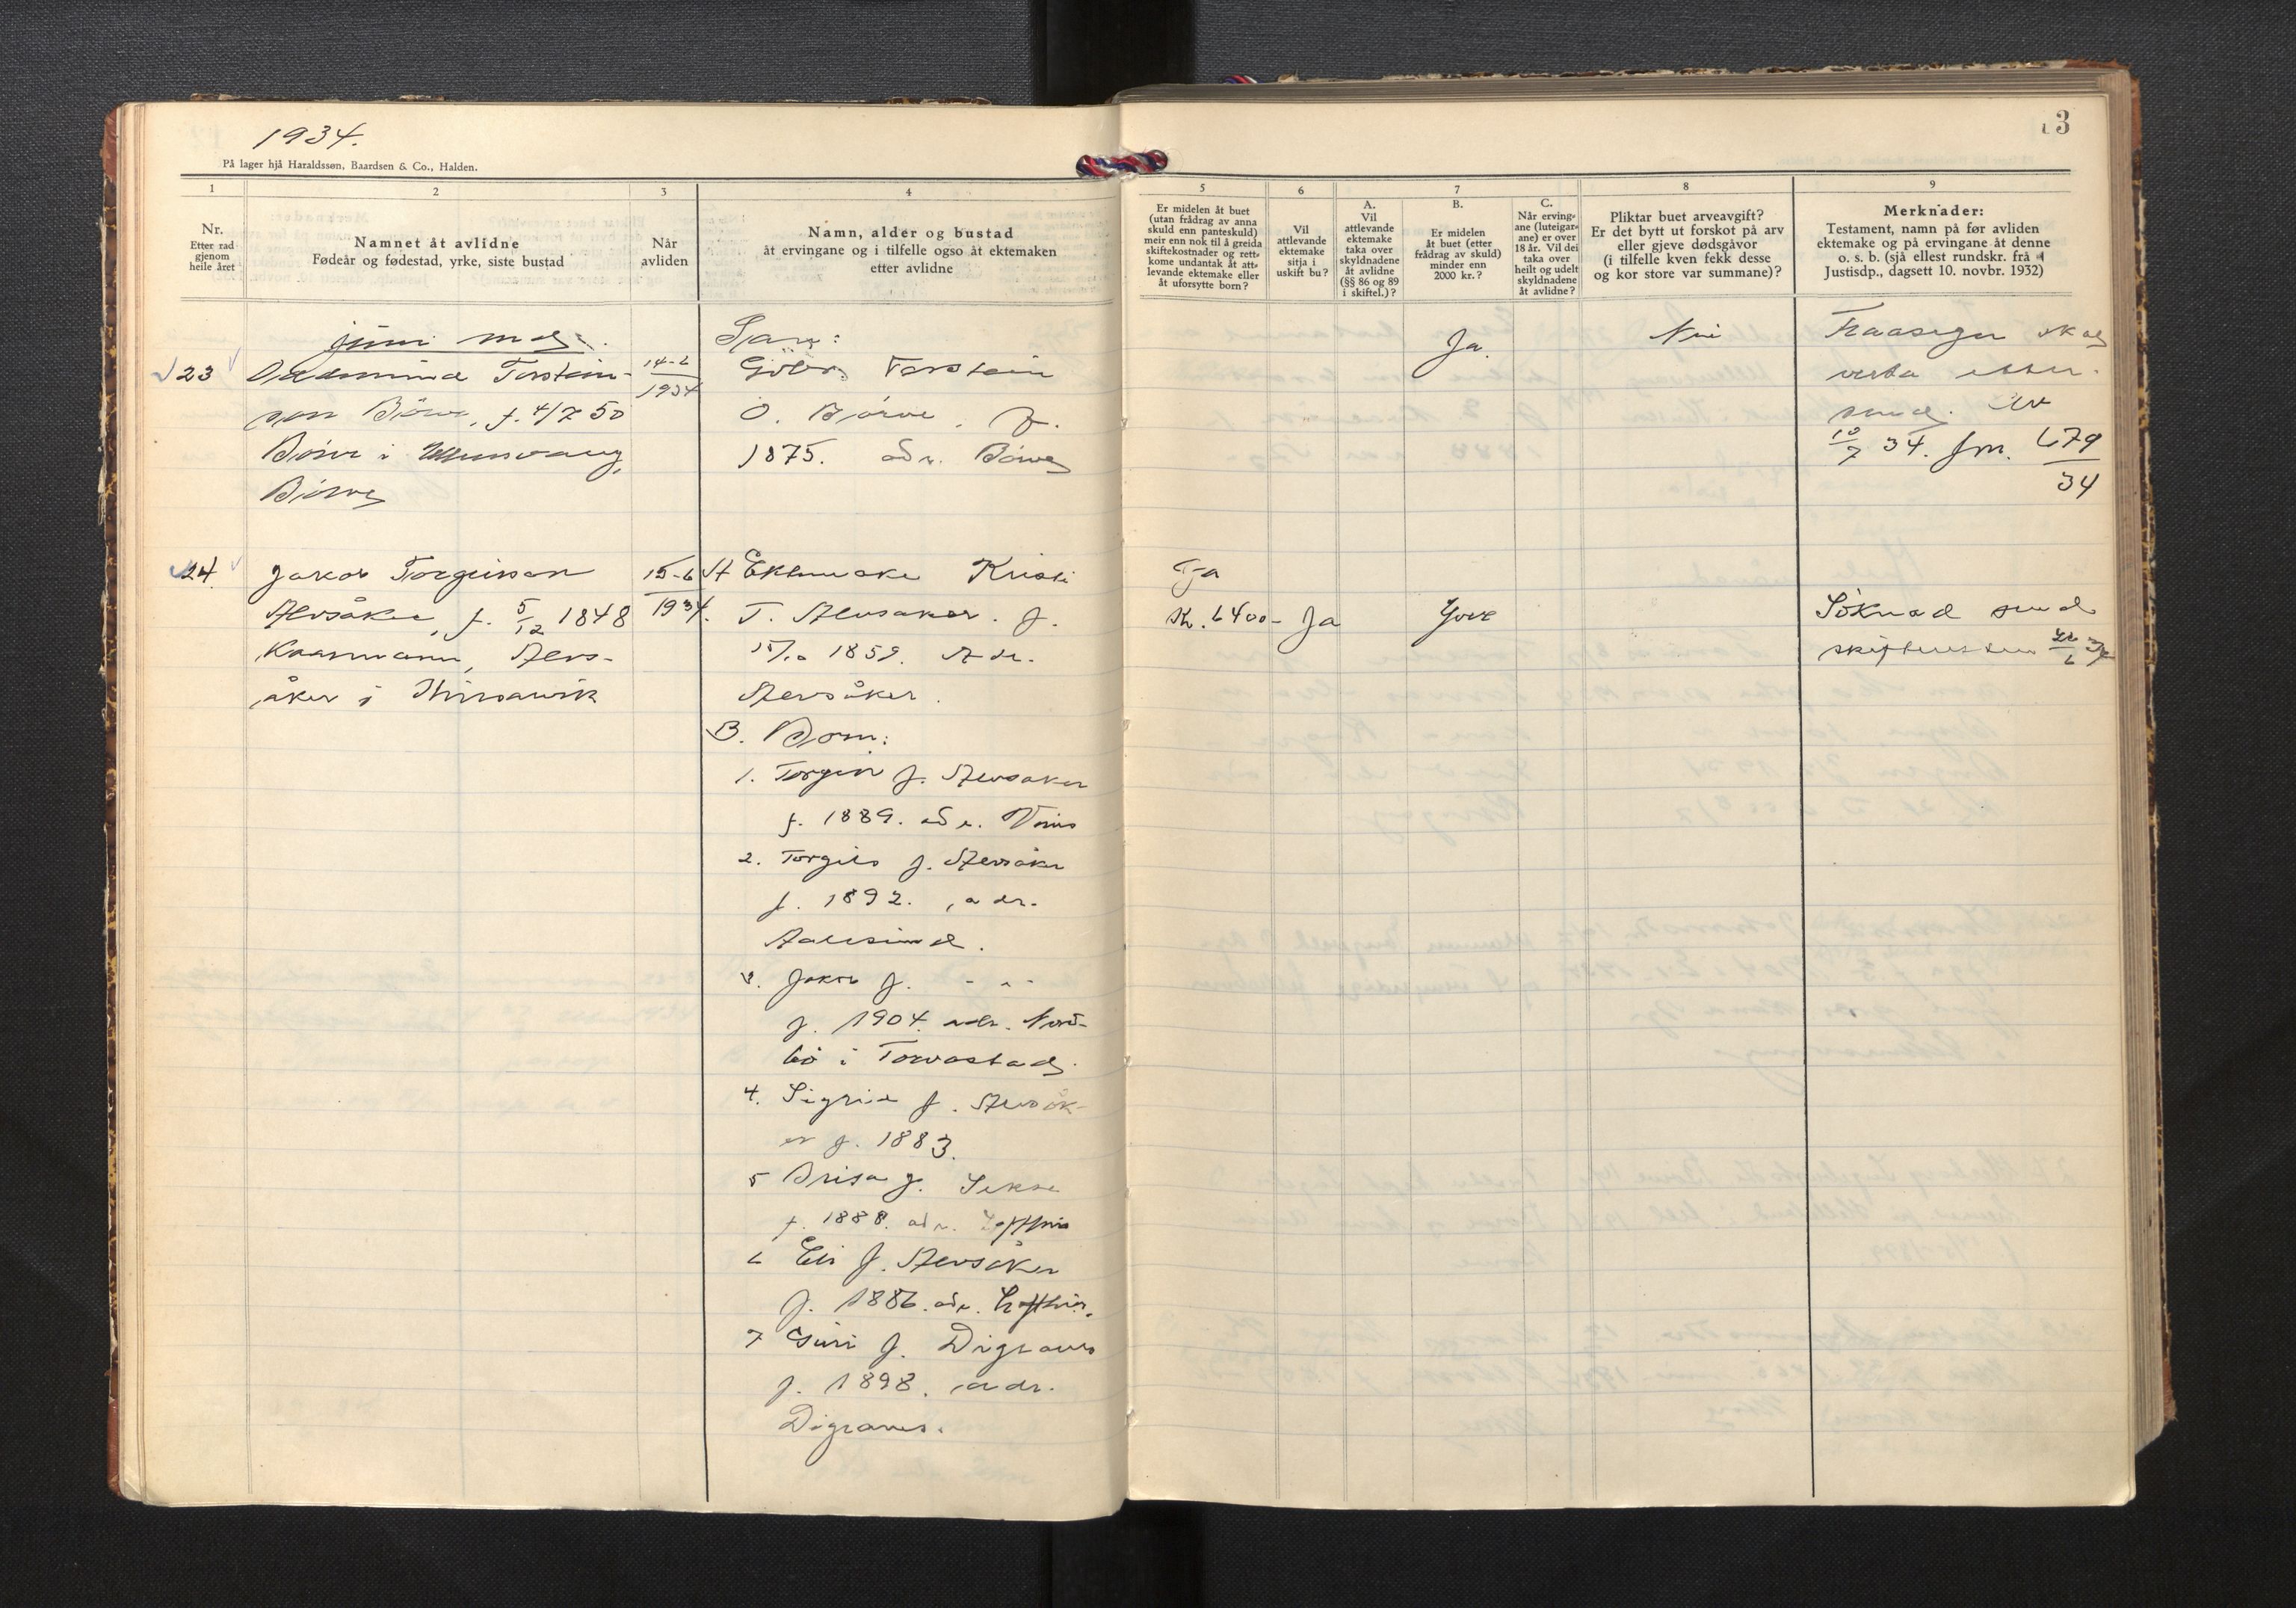 1934.
På lager hjå Haraldssøn, Baardsen & Co., Halden.
1
Nr.
Etter rad
gjenom
heile året
2
Namnet åt avlidne
Fødeår og fødestad, yrke, siste bustad
3
Når
avliden
4
Namn, alder og bustad
åt ervingane og i tilfelle ogso åt ektemaken
etter avlidne
juni
23
Torstein-
son Børve, f. 4/7 50
Børve i Ullensvang,
Børve
14-6
1934
Torstein
O. Børve, f.
1875. adr. Børve
24
Jakob Torgeirson
f. 5/12 1848
Kaarmann,
åker i Kinsarvik
15-6
1934.
A Ektemake Kristi
T. f.
1859. Adr.
B. Born:
1. Torgeir J.
f. 1889. adr.
2. Torgils J.
f. 1892. adr.
Aalesund.
3. Jakob J. - " -
f. 1904. adr. Nord-
bø i Torvastad.
4. Sigrid J.
er f. 1883.
5 Brita J. Sekse
f. 1888. adr. Lofthus
6 Eli J.
f. 1886. adr. Lofthus.
7 Guri J. Digranes
f. 1898. adr.
Digranes.
13
5
Er midelen åt buet
(utan frådrag av anna
skuld enn panteskuld)
meir enn nok til å greida
skiftekostnader og rett-
kome undantak åt att-
levande ektemake eller
åt uforsytte born?
6
Vil
attlevande
ektemake
sitja i
uskift bu?
7
A.
Vil
attlevande
ektemake
taka over
skyldnadene
åt avlidne
(§§ 86 og 89
i skiftel.)?
B.
Er midelen
åt buet (etter
frådrag av skuld)
minder enn
2000 kr.?
C.
Når erving-
ane (luteigar-
ane) er over
18 år. Vil dei
taka over
heilt og udelt
skyldnadene
åt avlidne?
8
Pliktar buet arveavgift?
Er det bytt ut forskot på arv
eller gjeve dødsgåvor
(i tilfelle kven fekk desse
og kor store var summane)?
9
Merknader:
Testament, namn på før avliden
ektemake og på ervingane åt denne
o. s. b. (sjå ellest rundskr. frå
Justisdp., dagsett 10. novbr. 1932)
Ja.
Nei
Fraasegn skal
verta etter-
send.
10/7 34. Jnr. 679
34
Ja
Kr. 6400-
Ja
Søknad send
skifteretten